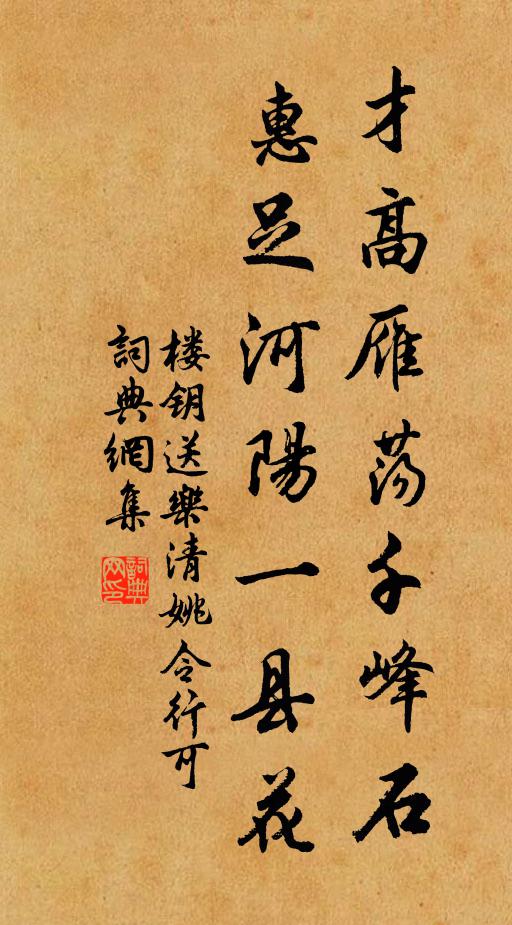 才高雁荡千峰石
惠足河陽一县花
楼钥送樂清姚令行可
詞典網集
詞典
网印